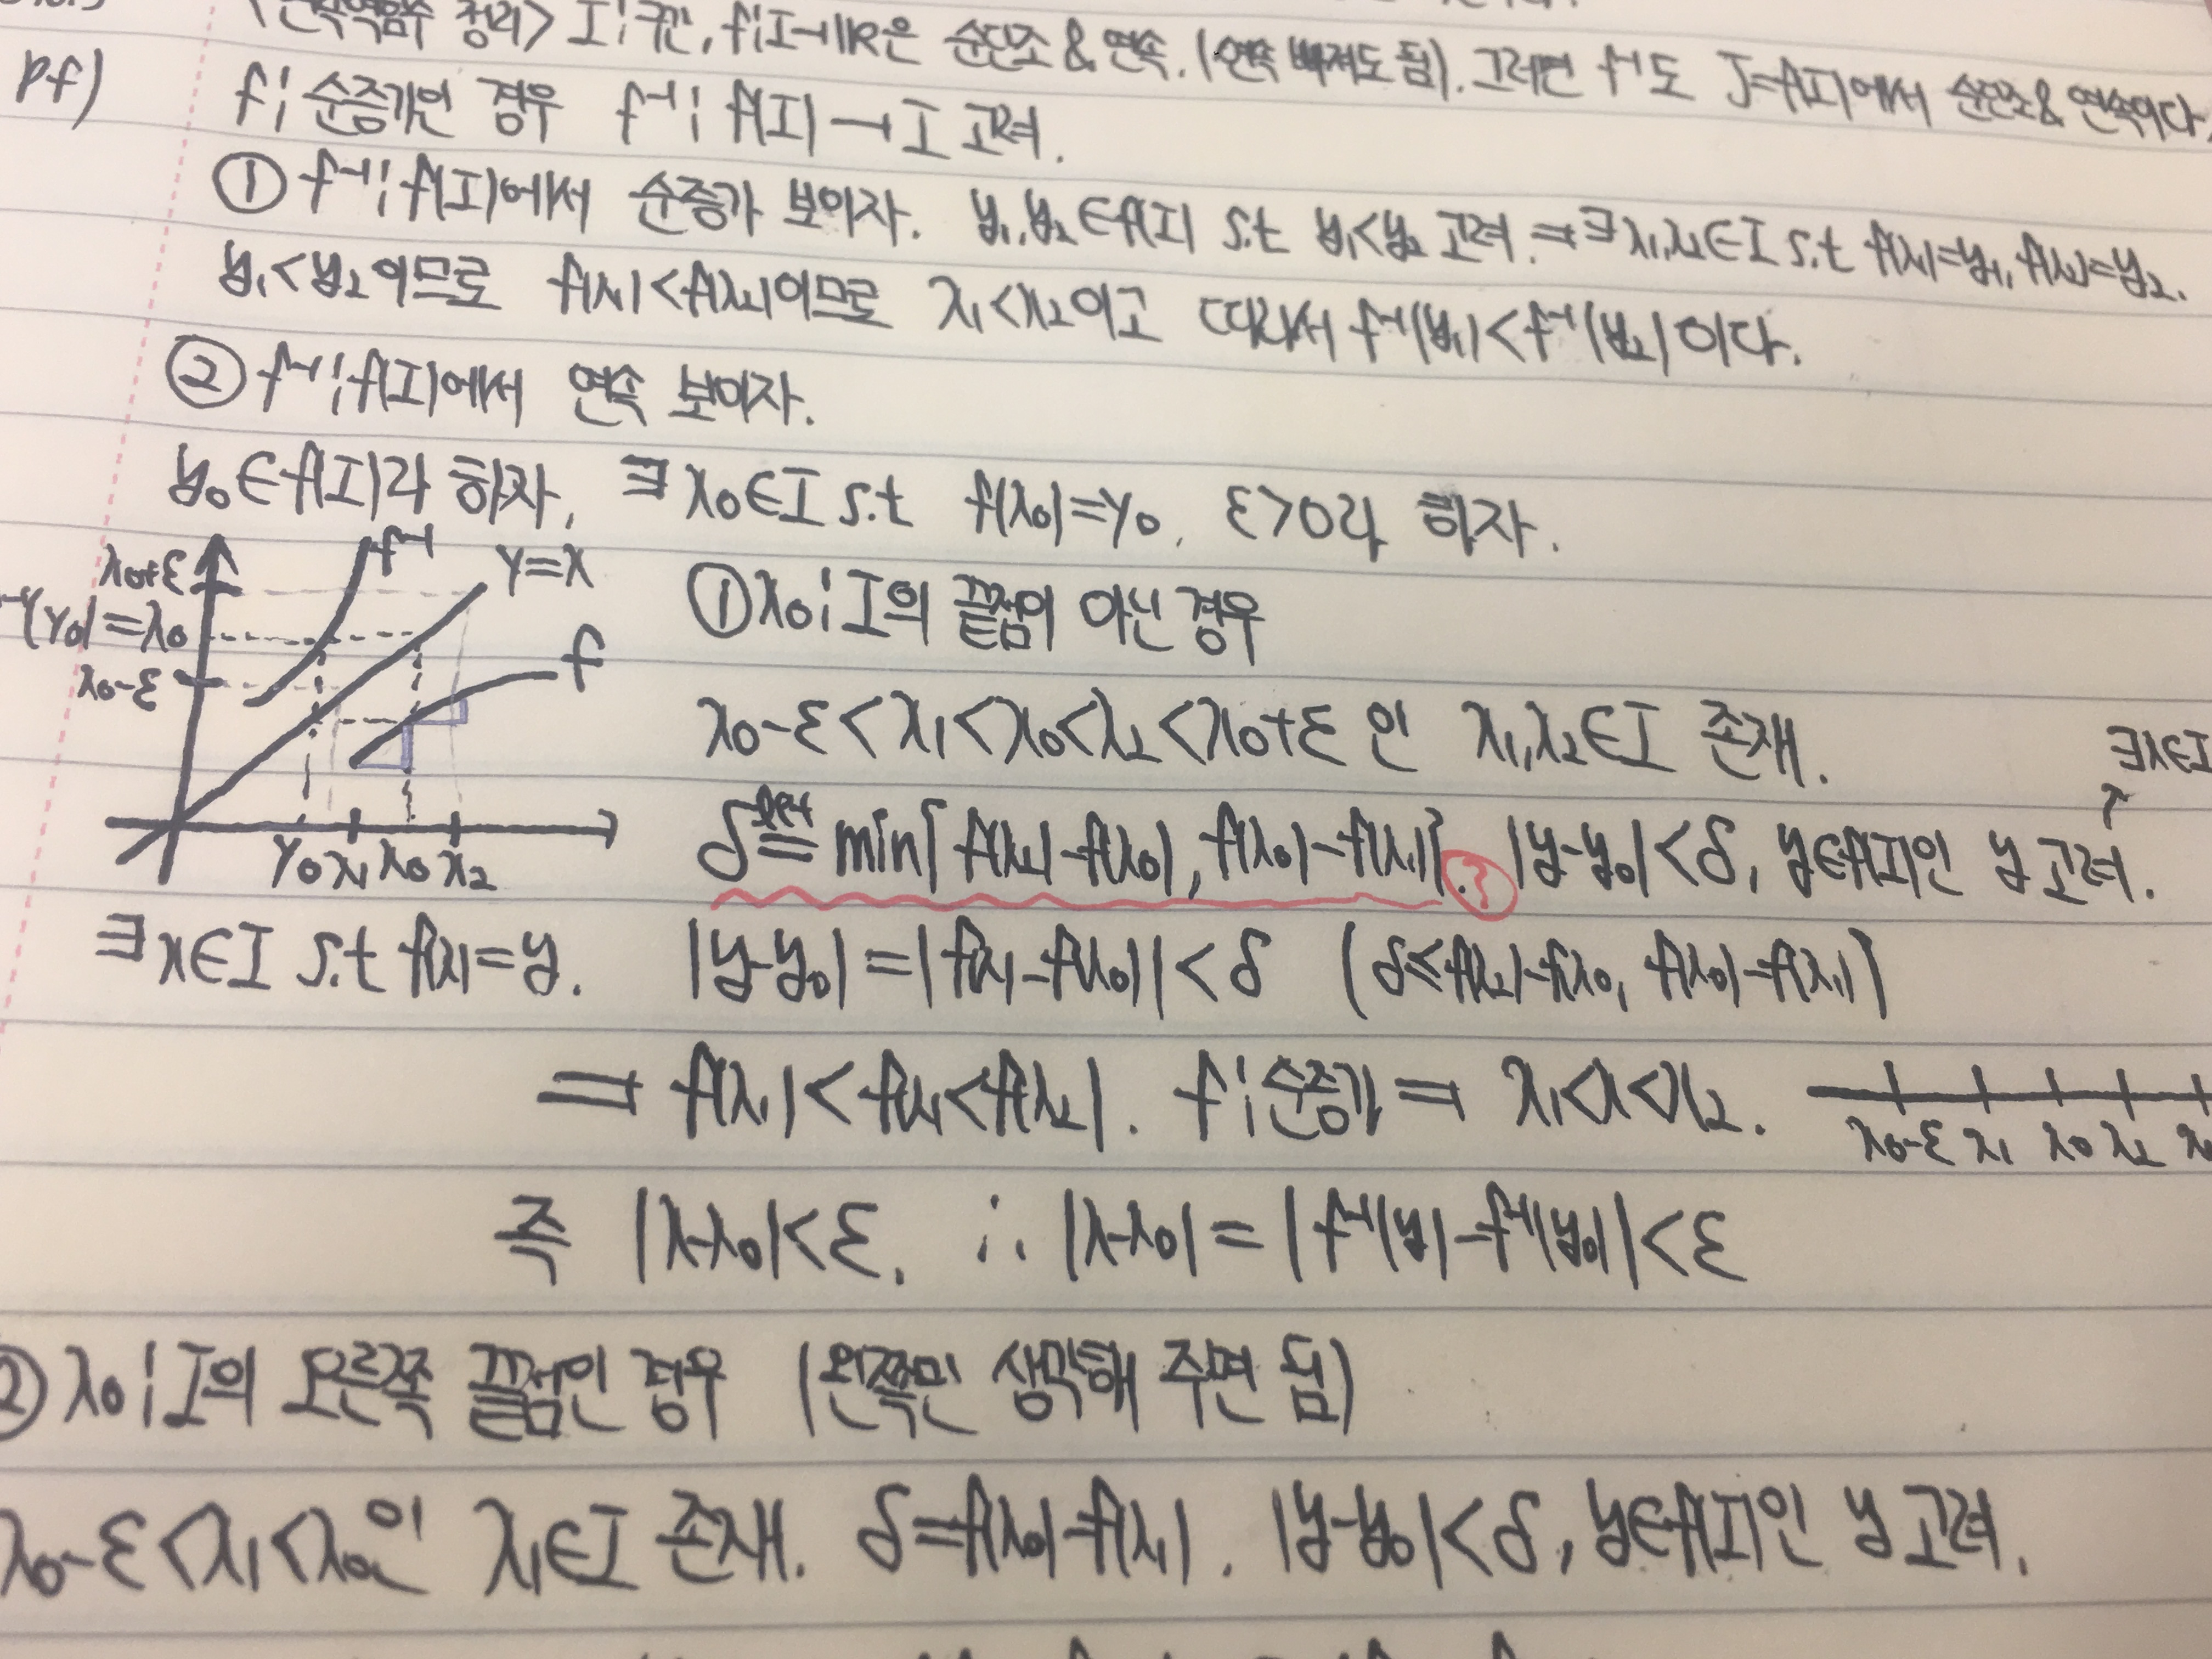 <연속역함수 정리> I:구간, f:I→ℝ은 순단조 & 연속. (연속 빠져도 됨). 그러면 f⁻¹도 J=f(I)에서 순단조 & 연속이다.
pf) f:순증가인 경우 f⁻¹: f(I)→I 고려.
① f⁻¹: f(I)에서 순증가 보이자. y₁,y₂∈f(I) s.t y₁<y₂ 고려. ⇒ ∃x₁,x₂∈I s.t f(x₁)=y₁, f(x₂)=y₂.
y₁<y₂이므로 f(x₁)<f(x₂)이므로 x₁<x₂이고 따라서 f⁻¹(y₁)<f⁻¹(y₂)이다.
② f⁻¹: f(I)에서 연속 보이자.
y₀∈f(I)라 하자, ∃x₀∈I s.t f(x₀)=y₀. ε>0라 하자.
x₀+ε
f⁻¹
y=x
⁻¹(y₀)=x₀
f
x₀-ε
y₀ x₁ x₀ x₂
① x₀:I의 끝점이 아닌 경우
x₀-ε<x₁<x₀<x₂<x₀+ε 인 x₁,x₂∈I 존재.
∃x∈I
δ ≝ min{f(x₂)-f(x₀), f(x₀)-f(x₁)}. ? |y-y₀|<δ, y∈f(I)인 y 고려.
∃x∈I s.t f(x)=y. |y-y₀|=|f(x)-f(x₀)|<δ (δ≤f(x₂)-f(x₀, f(x₀)-f(x₁))
⇒ f(x₁)<f(x)<f(x₂). f:순증가 ⇒ x₁<x<x₂.
x₀-ε x₁ x₀ x₂
즉 |x-x₀|<ε. ∴ |x-x₀|=|f⁻¹(y)-f⁻¹(y₀)|<ε
② x₀:I의 오른쪽 끝점인 경우 (왼쪽만 생각해 주면 됨)
x₀-ε<x₁<x₀인 x₁∈I 존재. δ=f(x₀)-f(x₁). |y-y₀|<δ, y∈f(I)인 y 고려.